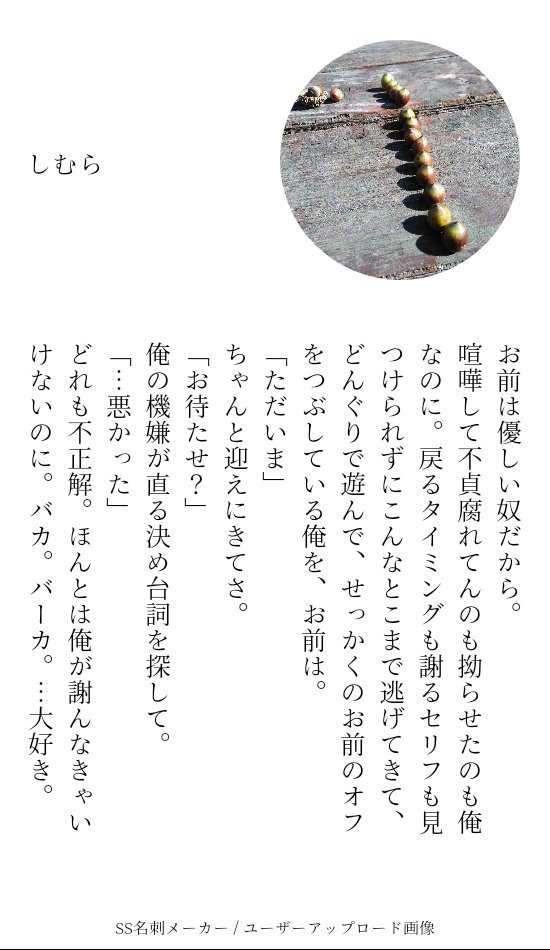 しむら
お前は優しい奴だから。
喧嘩して不貞腐れてんのも拗らせたのも俺
なのに。戻るタイミングも謝るセリフも見
つけられずにこんなとこまで逃げてきて、
どんぐりで遊んで、せっかくのお前のオフ
をつぶしている俺を、お前は。
「ただいま」
ちゃんと迎えにきてさ。
「お待たせ？」
俺の機嫌が直る決め台詞を探して。
「…悪かった」
どれも不正解。ほんとは俺が謝んなきゃい
けないのに。バカ。バーカ。…大好き。
SS名刺メーカー / ユーザーアップロード画像